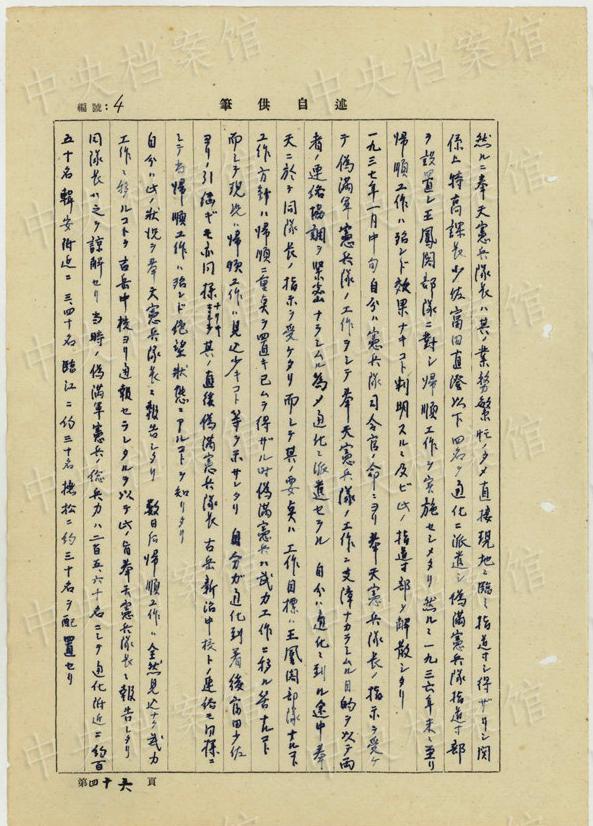 編號:4
筆供自述
然ルニ奉天憲兵隊長ハ其ノ業務繁忙ノタメ直接現地ニ臨ミ指導ナシ得ザリシ関
係上特高課長少佐富田直澄以下四名ヲ通化ニ派遣シ偽満憲兵隊指導部
ヲ設置シ王鳳閣部隊ニ対シ帰順工作ヲ実施セシメタリ然ルニ一九三六年末ニ至リ
帰順工作ハ殆ンド効果ナキコト判明スルニ及ビ此ノ指導部ヲ解散シタリ
一九三七年一月中旬自分ハ憲兵隊司令官ノ命ニヨリ奉天憲兵隊長ノ指示ヲ受ケ
テ偽満軍憲兵隊ノ工作ヲシテ奉天憲兵隊ノ工作ニ支障ナカラシムル目的ヲ以テ両
者ノ連絡協調ヲ緊密ナラシムル為メ通化ニ派遣セラル 自分ハ通化ニ到ル途中奉
天ニ於テ同隊長ノ指示ヲ受ケタリ而シテ其ノ要点ハ工作目標ハ王鳳閣部隊ナルコト
工作方針ハ帰順ニ重点ヲ置キ已ムヲ得ザル時偽満憲兵ハ武力工作ニ移ル筈ナルコト
而シテ現況ハ帰順工作ハ見込少キコト等ヲ示サレタリ 自分ガ通化到着後富田少佐
ヨリノ引継ギモ亦同様ナリキ其ノ直後偽満憲兵隊長古岳新治中校トノ連絡モ同様ニ
シテ当帰順工作ハ殆ンド絶望状態ニアルコトヲ知リタリ
自分ハ此ノ状況ヲ奉天憲兵隊長ニ報告シタリ 数日后帰順工作ハ全然見込ナク武力
工作ニ移ルコトヲ古岳中校ヨリ通報セラレタルヲ以テ此ノ旨奉天憲兵隊長ニ報告シタリ
同隊長ハ之ヲ諒解セリ 当時ノ偽満軍憲兵ノ総兵力ハ二百五、六十名ニシテ通化附近ニ約百
五十名輯安附近ニ三、四十名臨江ニ約三十名撫松ニ約三十名ヲ配置セリ
第四十六頁
中央档案馆